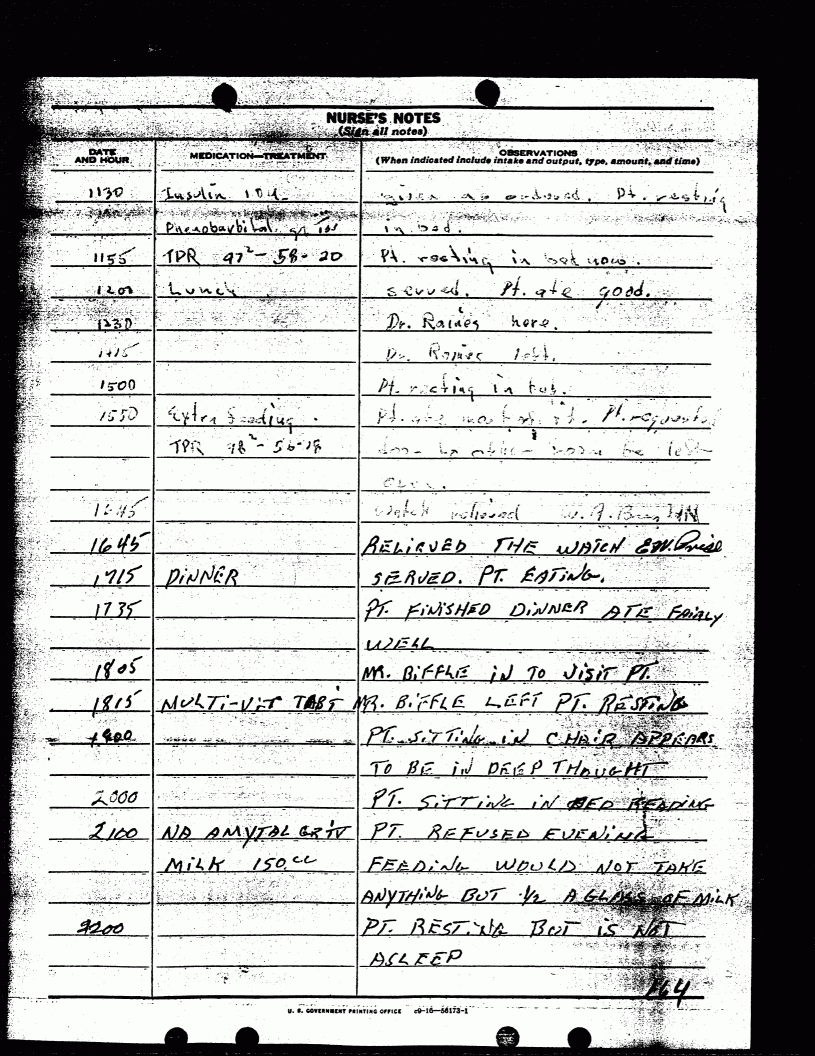 NURSE'S NOTES
(Sign all notes)
DATE AND HOUR MEDICATION—TREATMENT OBSERVATIONS
(When indicated include intake and output, type, amount, and time)
1130 Insulin 10 u given as ordered. Pt. resting
Phenobarbital gr in bed.
1155 TPR 97² - 58 - 20 Pt. resting in bed now.
1200 Lunch served. Pt. ate good.
1230 Dr. Raines here.
1415 Dr. Raines left.
1500 Pt. resting in
1550 Extra feeding. Pt. ate most of it. Pt. requested
TPR 98² - 56-18 door to other room be left
open.
1645 Watch relieved W.A. HN
1645 RELIEVED THE WATCH E.W.
1715 DINNER SERVED. PT. EATING.
1735 PT. FINISHED DINNER ATE FAIRLY
WELL
1805 MR. BIFFLE IN TO VISIT PT.
1815 MULTI-VIT TABT MR. BIFFLE LEFT PT. RESTING
1900 PT. SITTING IN CHAIR APPEARS
TO BE IN DEEP THOUGHT
2000 PT. SITTING IN BED READING
2100 NA AMYTAL GR IV PT. REFUSED EVENING
MILK 150.cc FEEDING WOULD NOT TAKE
ANYTHING BUT 1/2 A GLASS OF MILK
2200 PT. RESTING BUT IS NOT
ASLEEP
164
U. S. GOVERNMENT PRINTING OFFICE c9-16—56173-1